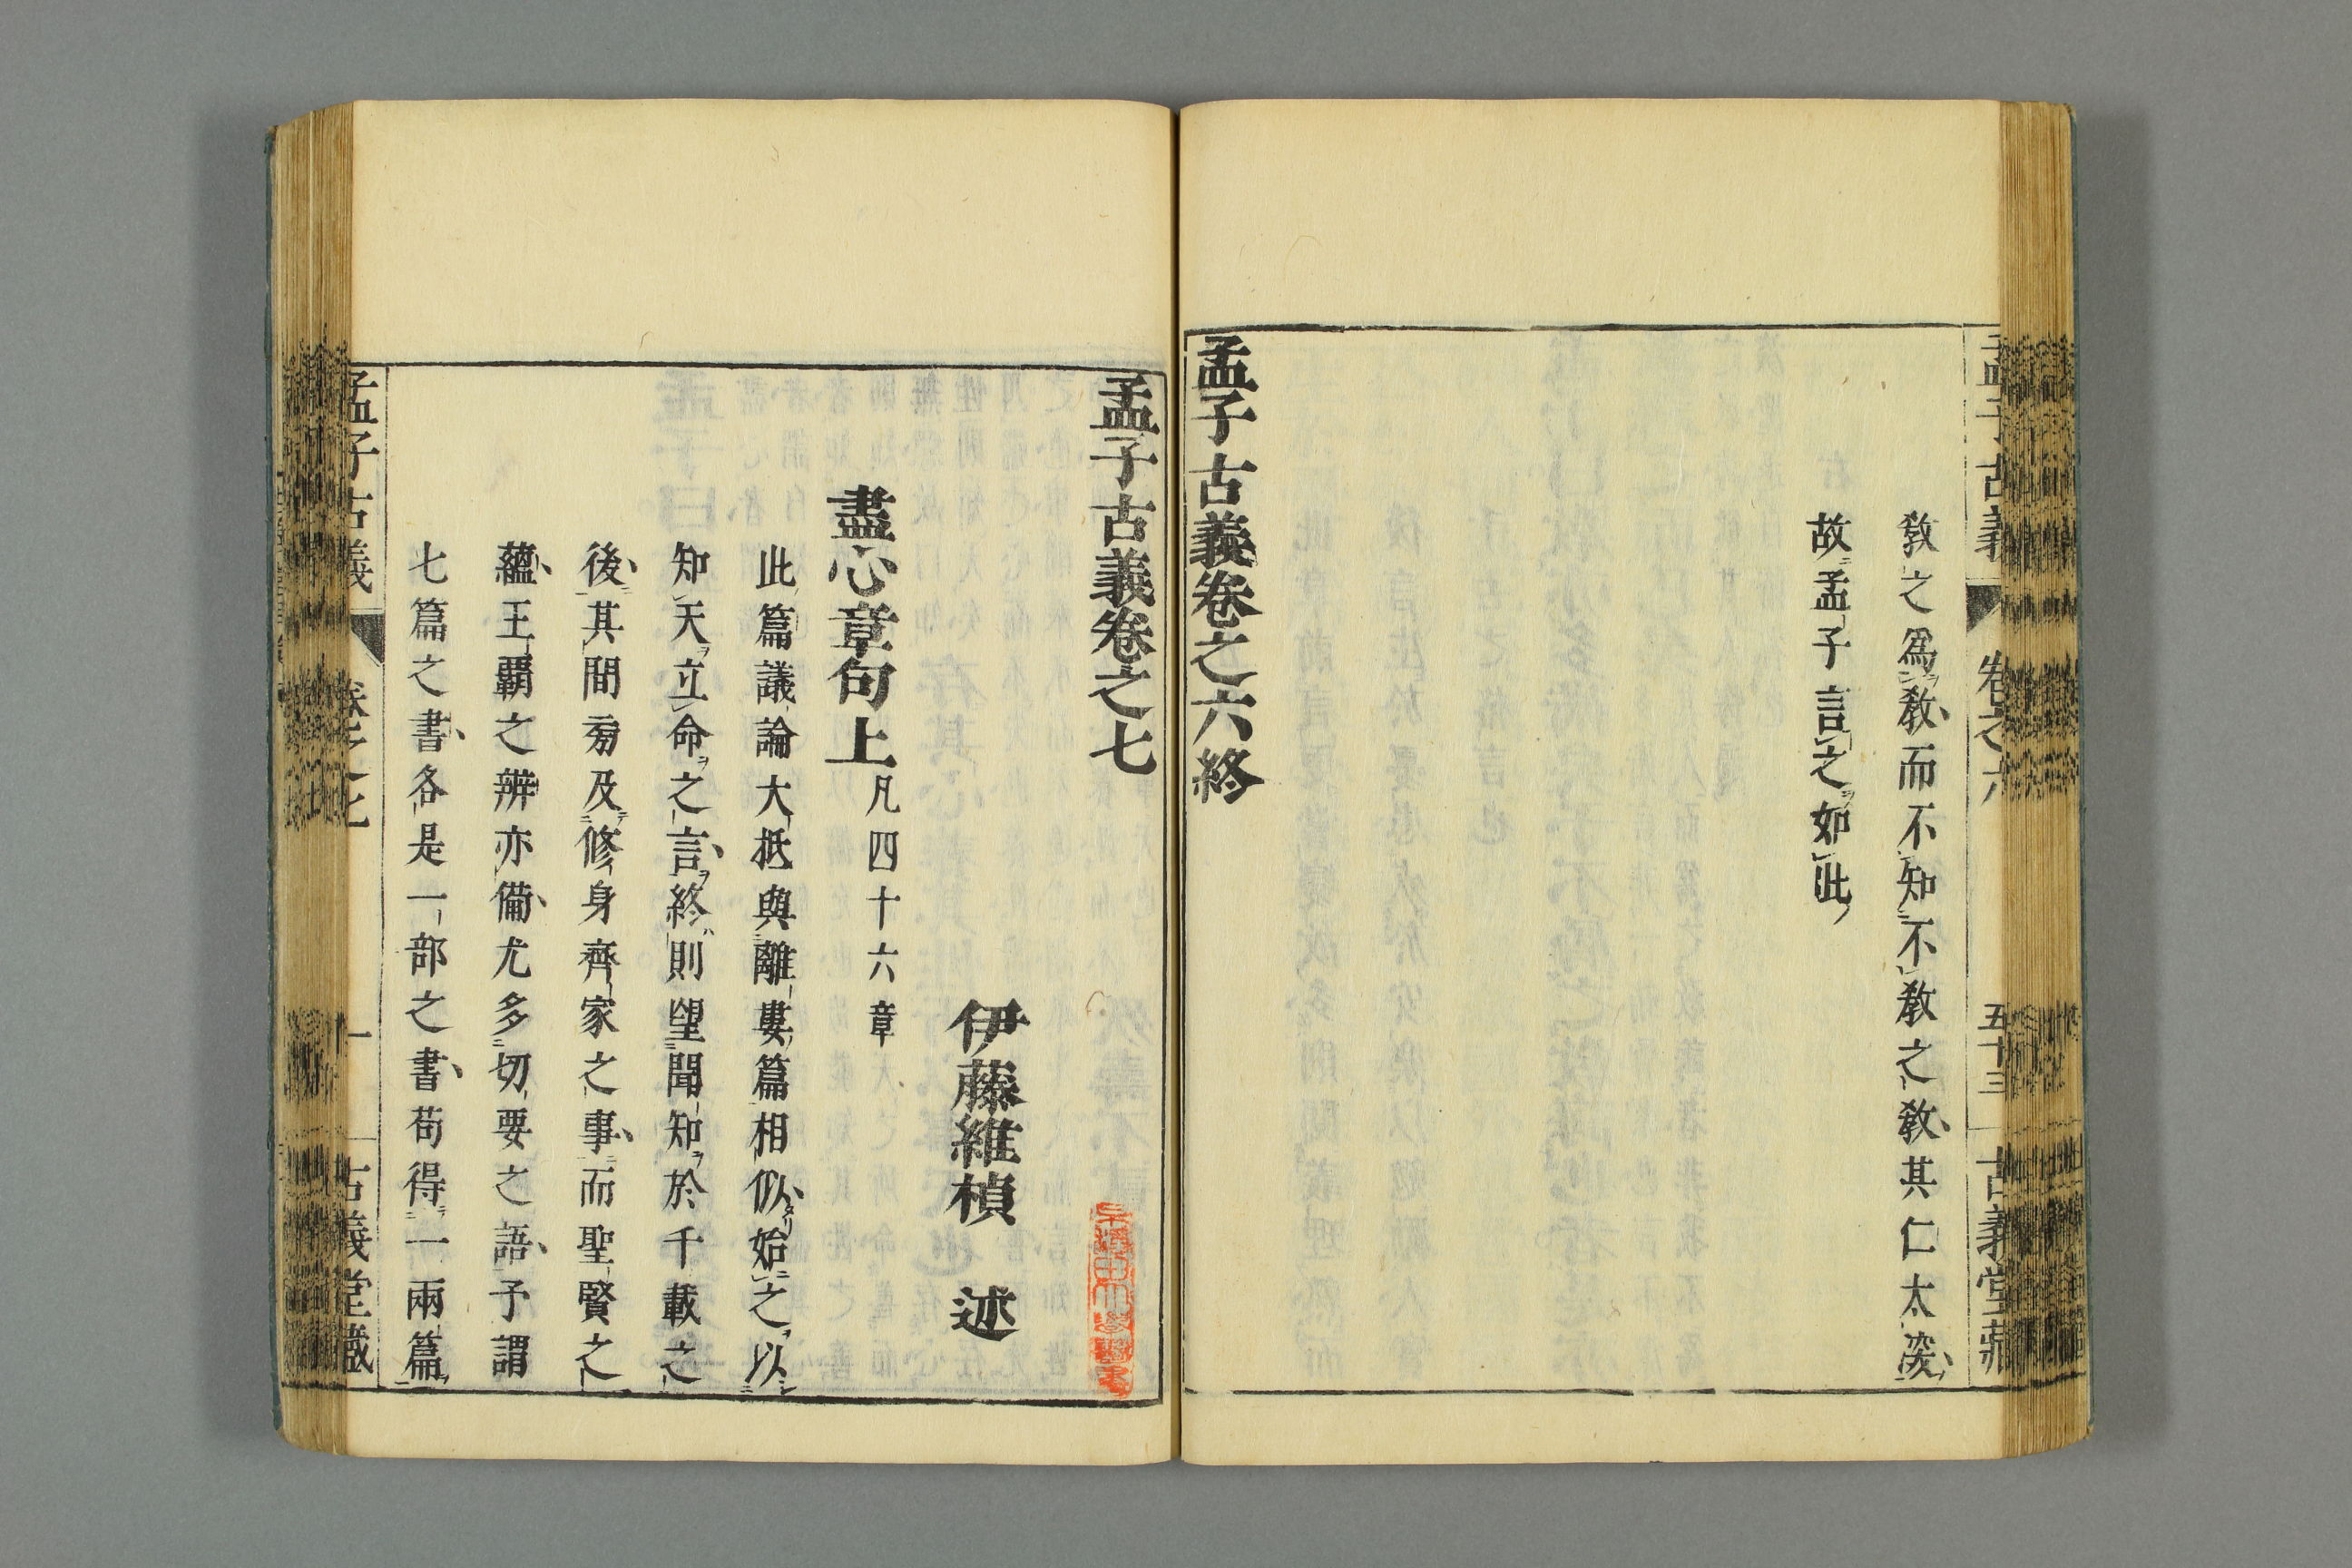 孟子古義 卷之六 五十三 古義堂藏
教之爲教而不知不教之教其仁太深
故孟子言之如此
孟子古義卷之六終
孟子古義卷之七
伊藤維楨 述
盡心章句上 凡四十六章
此篇議論大抵與離婁篇相似始之以
知天立命之言終則望聞知於千載之
後其間旁及修身齊家之事而聖賢之
蘊王霸之辨亦備尤多切要之語予謂
七篇之書各是一部之書苟得一兩篇
孟子古義 卷之七 一 古義堂藏